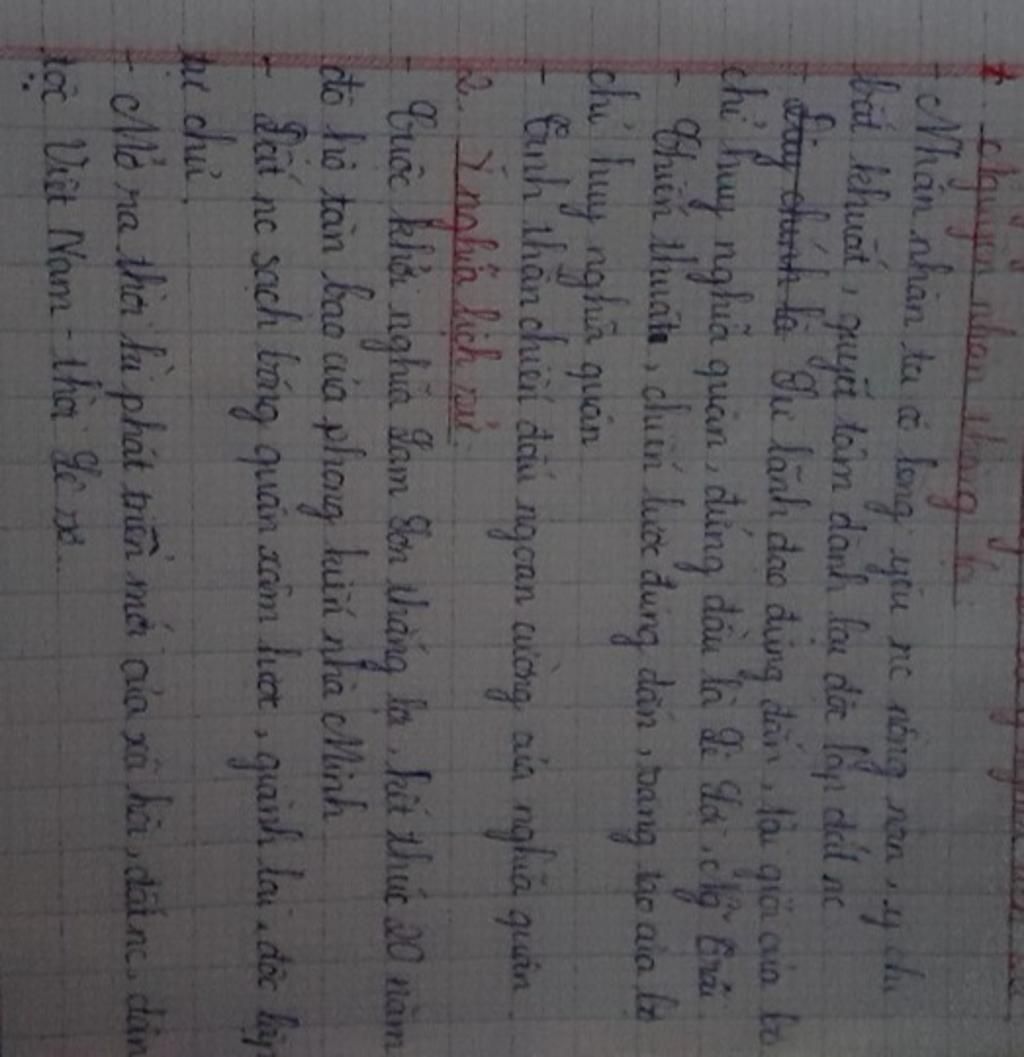 * Nguyên nhân thắng lợi
- Nhân nhân ta có lòng yêu nc nồng nàn, ý chí
bất khuất, quyết tâm dành lại độc lập đất nc
- Đây chính là Sự lãnh đạo đúng đắn, tài giỏi của bộ
chỉ huy nghĩa quân, đứng đầu là Lê Lợi, Ng~ Trãi
- Chiến thuật, chiến lược đúng đắn, sáng tạo của bộ
chỉ huy nghĩa quân
- Tinh thần chiến đấu ngoan cường của nghĩa quân
2. Ý nghĩa lịch sử
- Cuộc khởi nghĩa Lam Sơn thắng lợi, kết thúc 20 năm
đô hộ tàn bạo của phong kiến nhà Minh
- Đất nc sạch bóng quân xâm lược, giành lại độc lập
tự chủ.
- Mở ra thời kì phát triển mới của xã hội, đất nc, dân
tộc Việt Nam - thời Lê sơ.